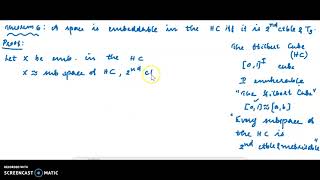 Theorem 6: A space is embeddable in the HC iff it is 2nd ctble & T3.
Proof:
Let X be emb. in the HC
X ≈ sub space of HC, 2nd ct
The Hilbert Cube
(HC)
[0,1]^I cube
I enumerable
"The Hilbert Cube"
[0,1] ≈ [a,b]
"Every subspace of
the HC is
2nd ctble & metrizable"
RECORDED WITH
SCREENCAST-O-MATIC